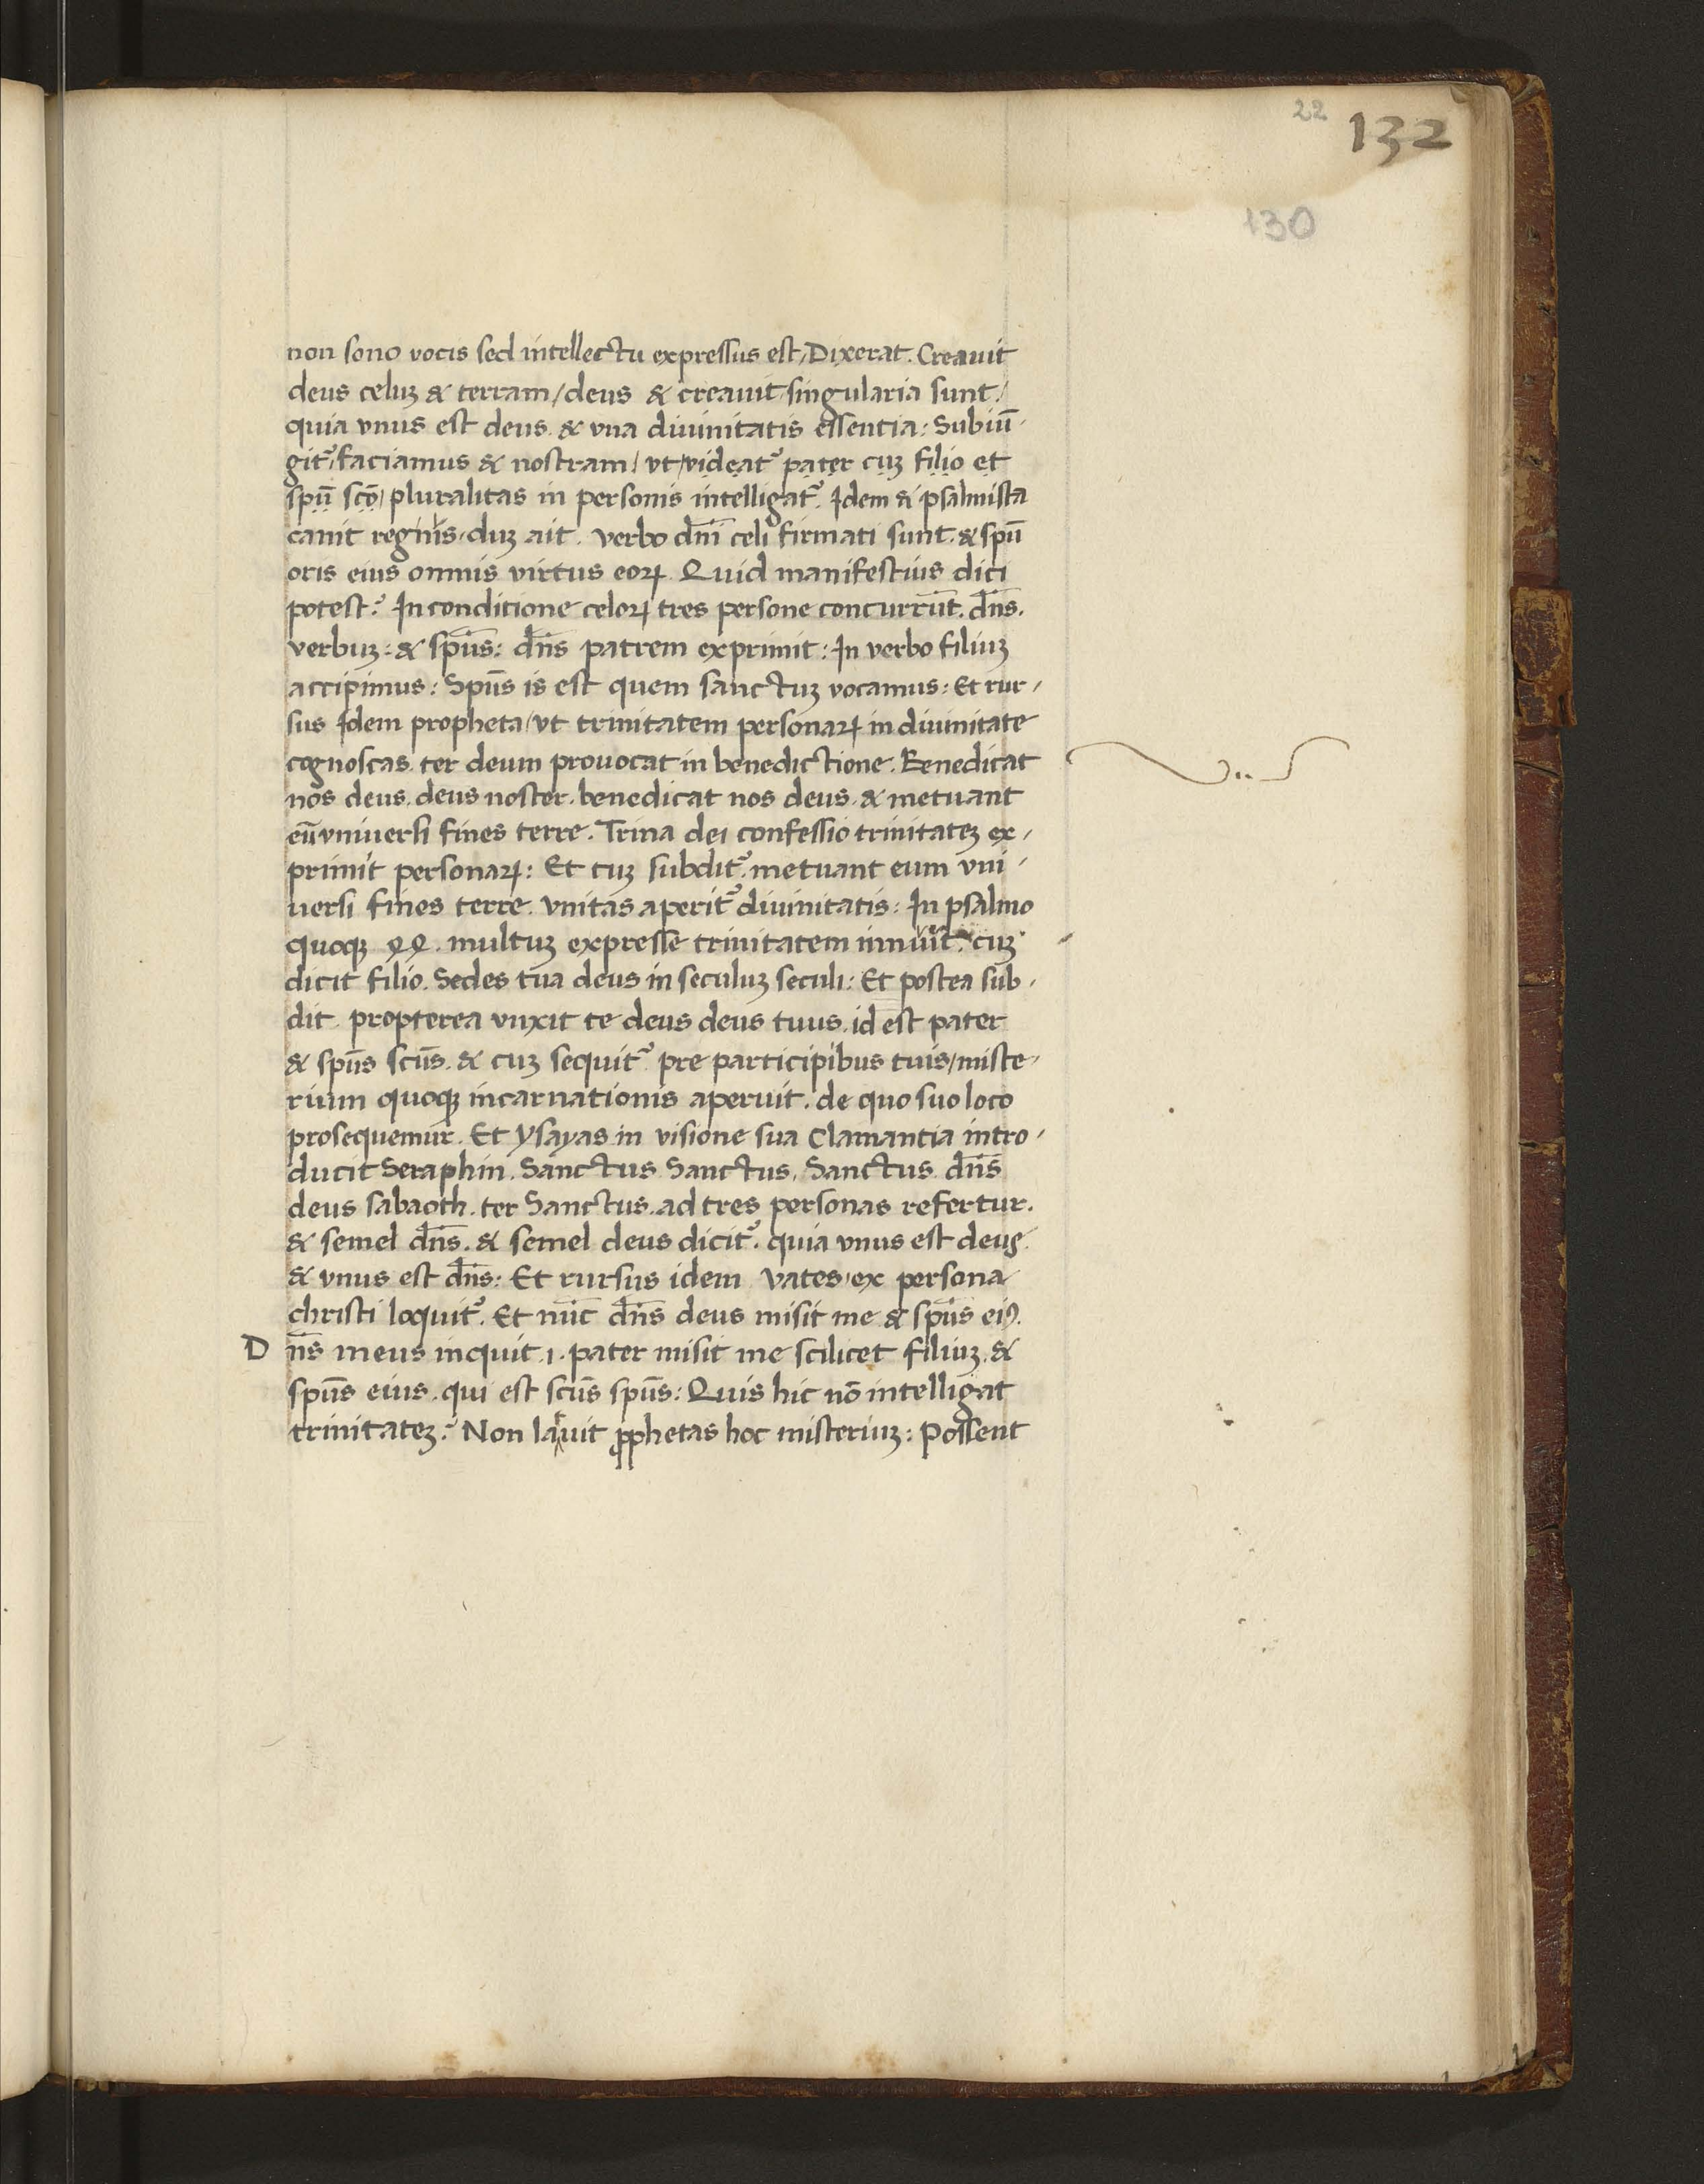 22 132
130
non sono vocis sed intellectu expressus est, Dixerat. Creavit
deus celuꝫ & terram / deus & creavit singularia sunt /
quia vnus est deus & vna diuinitatis essentia: Subiū-
git᷑, faciamus & nostram / vt / videat᷑ pater cuꝫ filio et
spū scō / pluralitas in personis intelligat᷑. Idem & psalmista
canit regius, duꝫ ait. verbo dn̄i celi firmati sunt. & spū
oris eius omnis virtus eoꝝ. Quid manifestius dici
potest? In conditione celoꝝ tres persone concurrūt. dn̄s.
verbuꝫ: & spūs: dn̄s patrem exprimit: In verbo filiuꝫ
accipimus: Spūs is est quem sanctuꝫ vocamus: Et rur-
sus Idem propheta / vt trinitatem personaꝝ in diuinitate
cognoscas. ter deum prouocat in benedictione. Benedicat
nos deus. deus noster. benedicat nos deus. & metuant
eū vniuersi fines terre. Trina dei confessio trinitateꝫ ex-
primit personaꝝ: Et cuꝫ subdit᷑. metuant eum vni-
uersi fines terre. vnitas aperit᷑ diuinitatis: In psalmo
quoqꝫ 44. multuꝫ expresse trinitatem cuꝫ
dicit filio. Sedes tua deus in seculuꝫ seculi: Et postea sub-
dit propterea vnxit te deus deus tuus. id est pater
& spūs scūs. & cuꝫ sequit᷑ pre participibus tuis / miste-
rium quoqꝫ incarnationis aperuit. de quo suo loco
prosequemur. Et ysayas in visione sua Clamantia intro-
ducit Seraphin. Sanctus Sanctus. Sanctus dn̄s
deus sabaoth. ter Sanctus. ad tres personas refertur.
& semel dn̄s. & semel deus dicit᷑. quia vnus est deus
& vnus est dn̄s: Et rursus idem vates, ex persona
christi loquit᷑. Et nūc dn̄s deus misit me & spūs eiꝰ.
D n̄s meus inquit .i. pater misit me scilicet filiuꝫ. &
spūs eius. qui est scūs spūs: Quis hic nō intelligat
trinitateꝫ? Non latuit ꝓphetas hoc misteriuꝫ: Possent